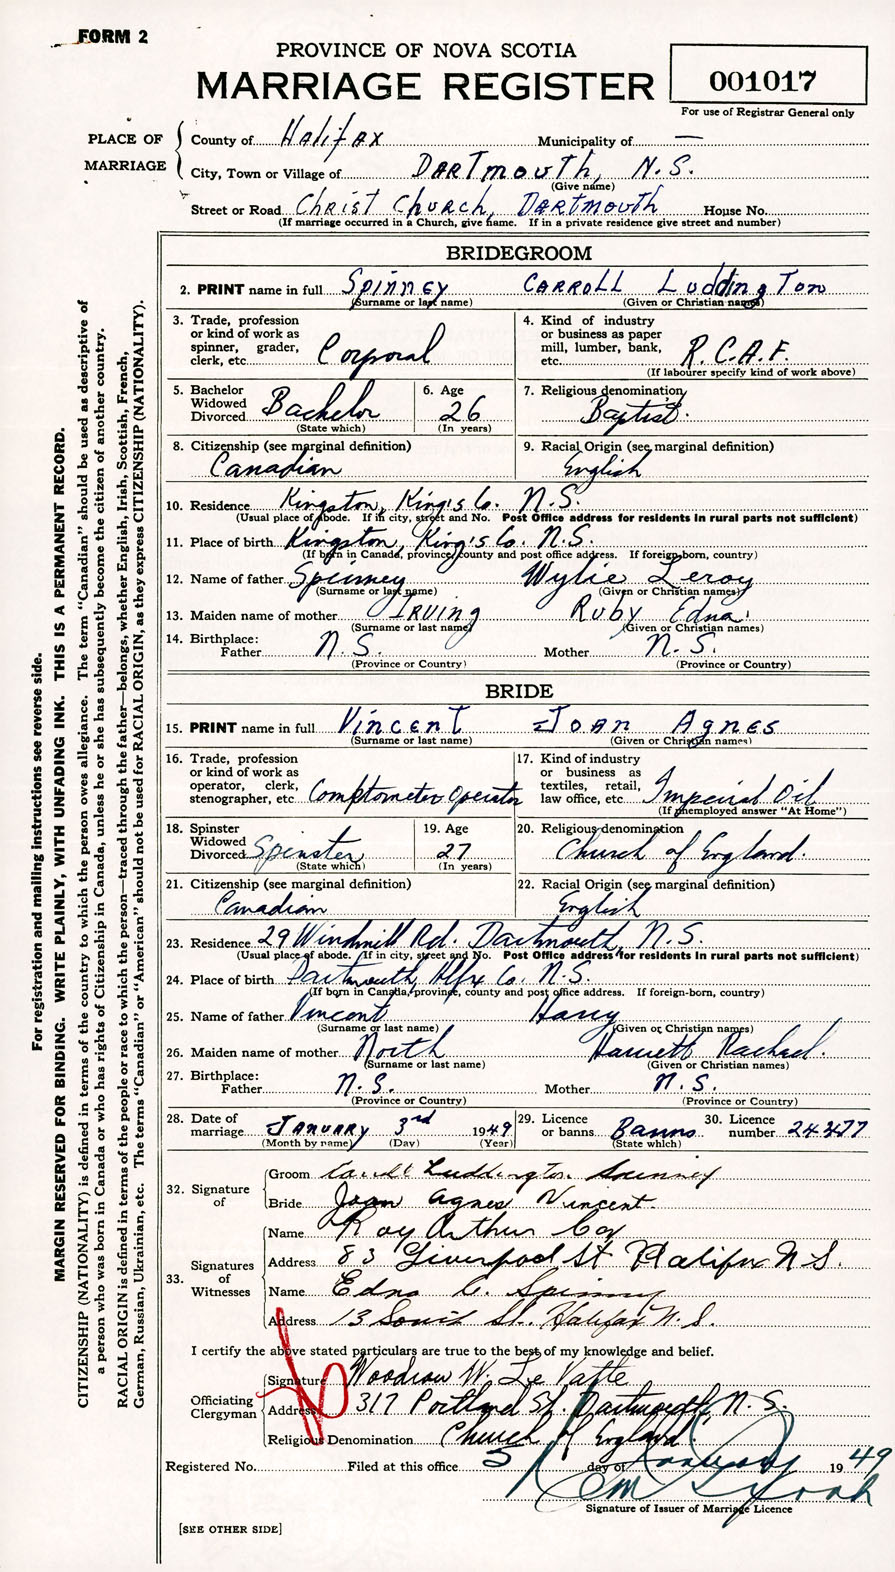 FORM 2
PROVINCE OF NOVA SCOTIA
MARRIAGE REGISTER
001017
For use of Registrar General only
PLACE OF MARRIAGE
County of Halifax Municipality of —
City, Town or Village of DARTMOUTH, N.S.
(Give name)
Street or Road Christ Church, DARTMOUTH House No.
(If marriage occurred in a Church, give name. If in a private residence give street and number)
BRIDEGROOM
2. PRINT name in full Spinney CARROLL Luddington
(Surname or last name) (Given or Christian names)
3. Trade, profession or kind of work as spinner, grader, clerk, etc. Corporal
4. Kind of industry or business as paper mill, lumber, bank, etc. R.C.A.F.
(If labourer specify kind of work above)
5. Bachelor Widowed Divorced Bachelor
(State which)
6. Age 26
(In years)
7. Religious denomination Baptist.
8. Citizenship (see marginal definition) Canadian
9. Racial Origin (see marginal definition) English
10. Residence Kingston, King's Co. N.S.
(Usual place of abode. If in city, street and No. Post Office address for residents in rural parts not sufficient)
11. Place of birth Kingston, King's Co. N.S.
(If born in Canada, province, county and post office address. If foreign-born, country)
12. Name of father Spinney Wylie Leroy
(Surname or last name) (Given or Christian names)
13. Maiden name of mother IRVING Ruby Edna
(Surname or last name) (Given or Christian names)
14. Birthplace:
Father N.S. Mother N.S.
(Province or Country) (Province or Country)
BRIDE
15. PRINT name in full Vincent Joan Agnes
(Surname or last name) (Given or Christian names)
16. Trade, profession or kind of work as operator, clerk, stenographer, etc. Comptometer Operator
17. Kind of industry or business as textiles, retail, law office, etc. Imperial Oil
(If unemployed answer "At Home")
18. Spinster Widowed Divorced Spinster
(State which)
19. Age 27
(In years)
20. Religious denomination Church of England.
21. Citizenship (see marginal definition) Canadian
22. Racial Origin (see marginal definition) English
23. Residence 29 Windmill Rd. Dartmouth, N.S.
(Usual place of abode. If in city, street and No. Post Office address for residents in rural parts not sufficient)
24. Place of birth Dartmouth, Hlfx Co. N.S.
(If born in Canada, province, county and post office address. If foreign-born, country)
25. Name of father Vincent Harry
(Surname or last name) (Given or Christian names)
26. Maiden name of mother North Harriett Rachael.
(Surname or last name) (Given or Christian names)
27. Birthplace:
Father N.S. Mother N.S.
(Province or Country) (Province or Country)
28. Date of marriage January 3rd 1949
(Month by name) (Day) (Year)
29. Licence or banns Banns
(State which)
30. Licence number
32. Signature of
Groom Carroll Luddington Spinney
Bride Joan Agnes Vincent.
33. Signatures of Witnesses
Name Roy Arthur Coy
Address 83 Liverpool St Halifax N.S.
Name Edna C. Spinney
Address 13 St. Halifax N.S.
I certify the above stated particulars are true to the best of my knowledge and belief.
Officiating Clergyman
Signature Woodrow W. Le
Address 317 Portland St. Dartmouth, N.S.
Religious Denomination Church of England
Registered No. Filed at this office 5 day of January 1949
Signature of Issuer of Marriage Licence
[SEE OTHER SIDE]
For registration and mailing instructions see reverse side.
MARGIN RESERVED FOR BINDING. WRITE PLAINLY, WITH UNFADING INK. THIS IS A PERMANENT RECORD.
CITIZENSHIP (NATIONALITY) is defined in terms of the country to which the person owes allegiance. The term "Canadian" should be used as descriptive of
a person who was born in Canada or who has rights of Citizenship in Canada, unless he or she has subsequently become the citizen of another country.
RACIAL ORIGIN is defined in terms of the people or race to which the person—traced through the father—belongs, whether English, Irish, Scottish, French,
German, Russian, Ukrainian, etc. The terms "Canadian" or "American" should not be used for RACIAL ORIGIN, as they express CITIZENSHIP (NATIONALITY).